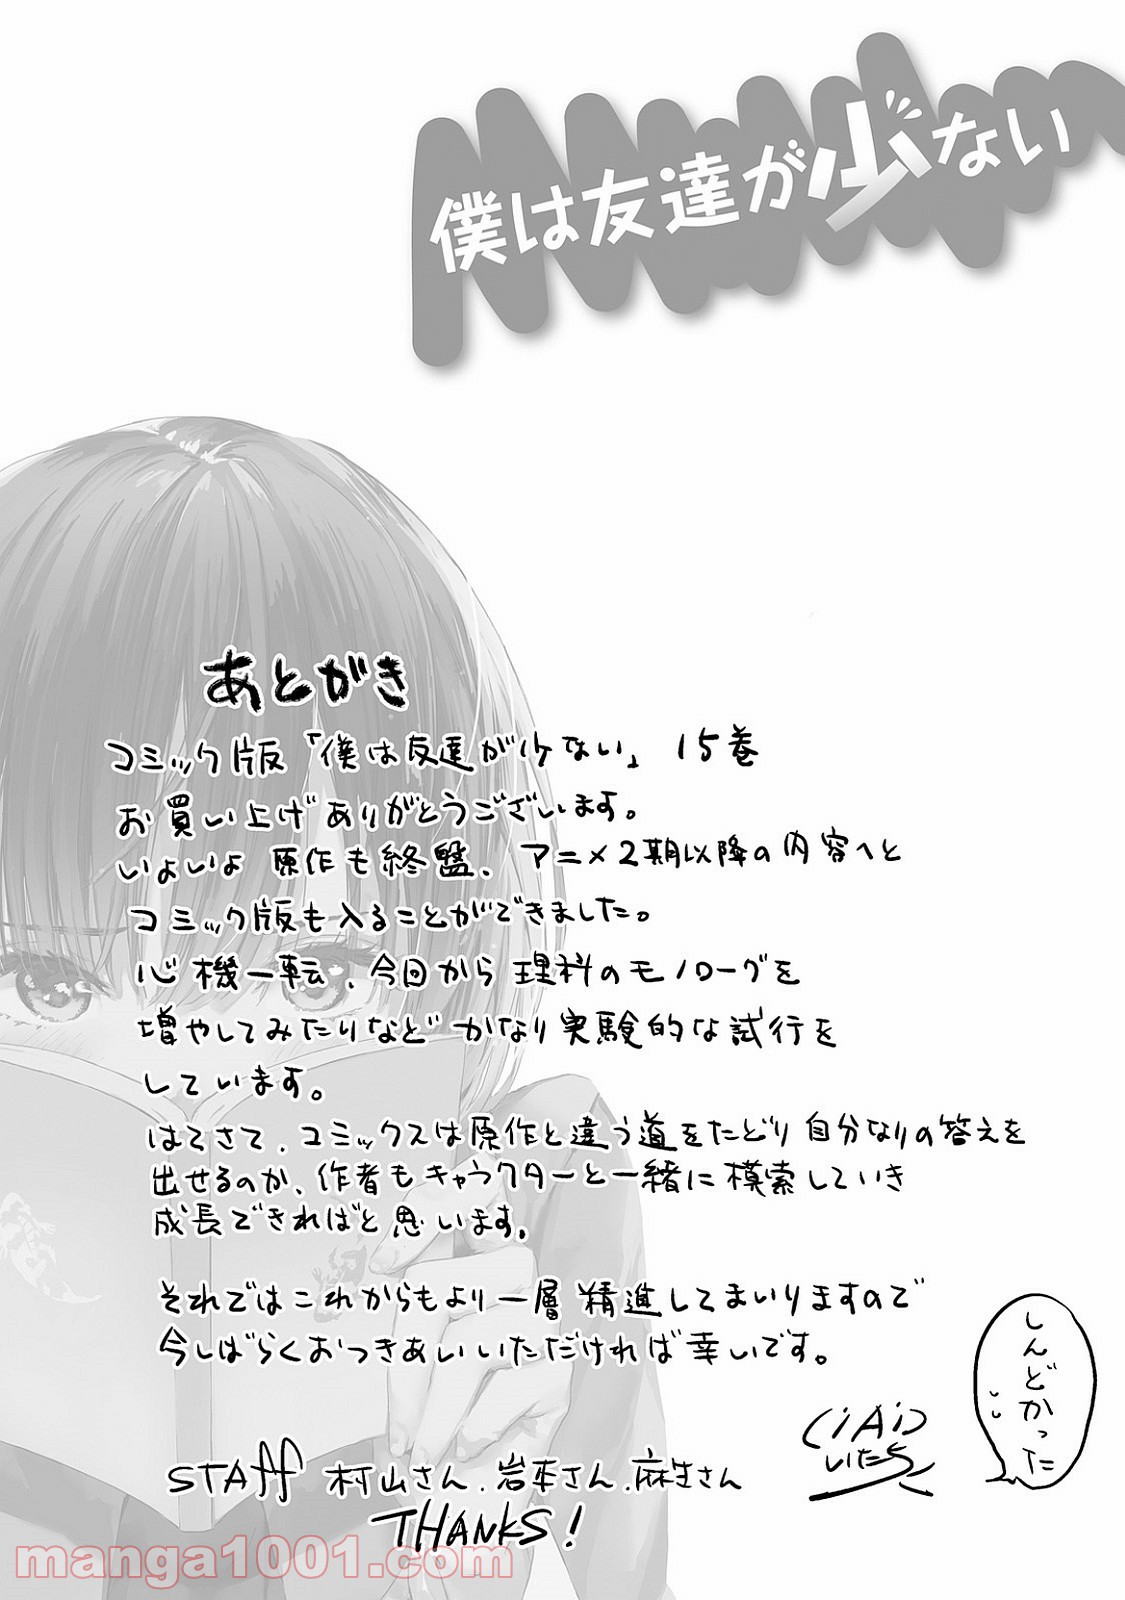 僕は友達が少ない
あとがき
コミック版「僕は友達が少ない」15巻
お買い上げありがとうございます。
いよいよ原作も終盤、アニメ2期以降の内容へと
コミック版も入ることができました。
心機一転、今回から理科のモノローグを
増やしてみたりなどかなり実験的な試行を
しています。
はてさて、コミックスは原作と違う道をたどり自分なりの答えを
出せるのか、作者もキャラクターと一緒に模索していき
成長できればと思います。
それではこれからもより一層精進してまいりますので
今しばらくおつきあいいただければ幸いです。
しんどかった
いたち
STAff 村山さん、岩本さん、麻生さん
THANKS!
manga1001.com